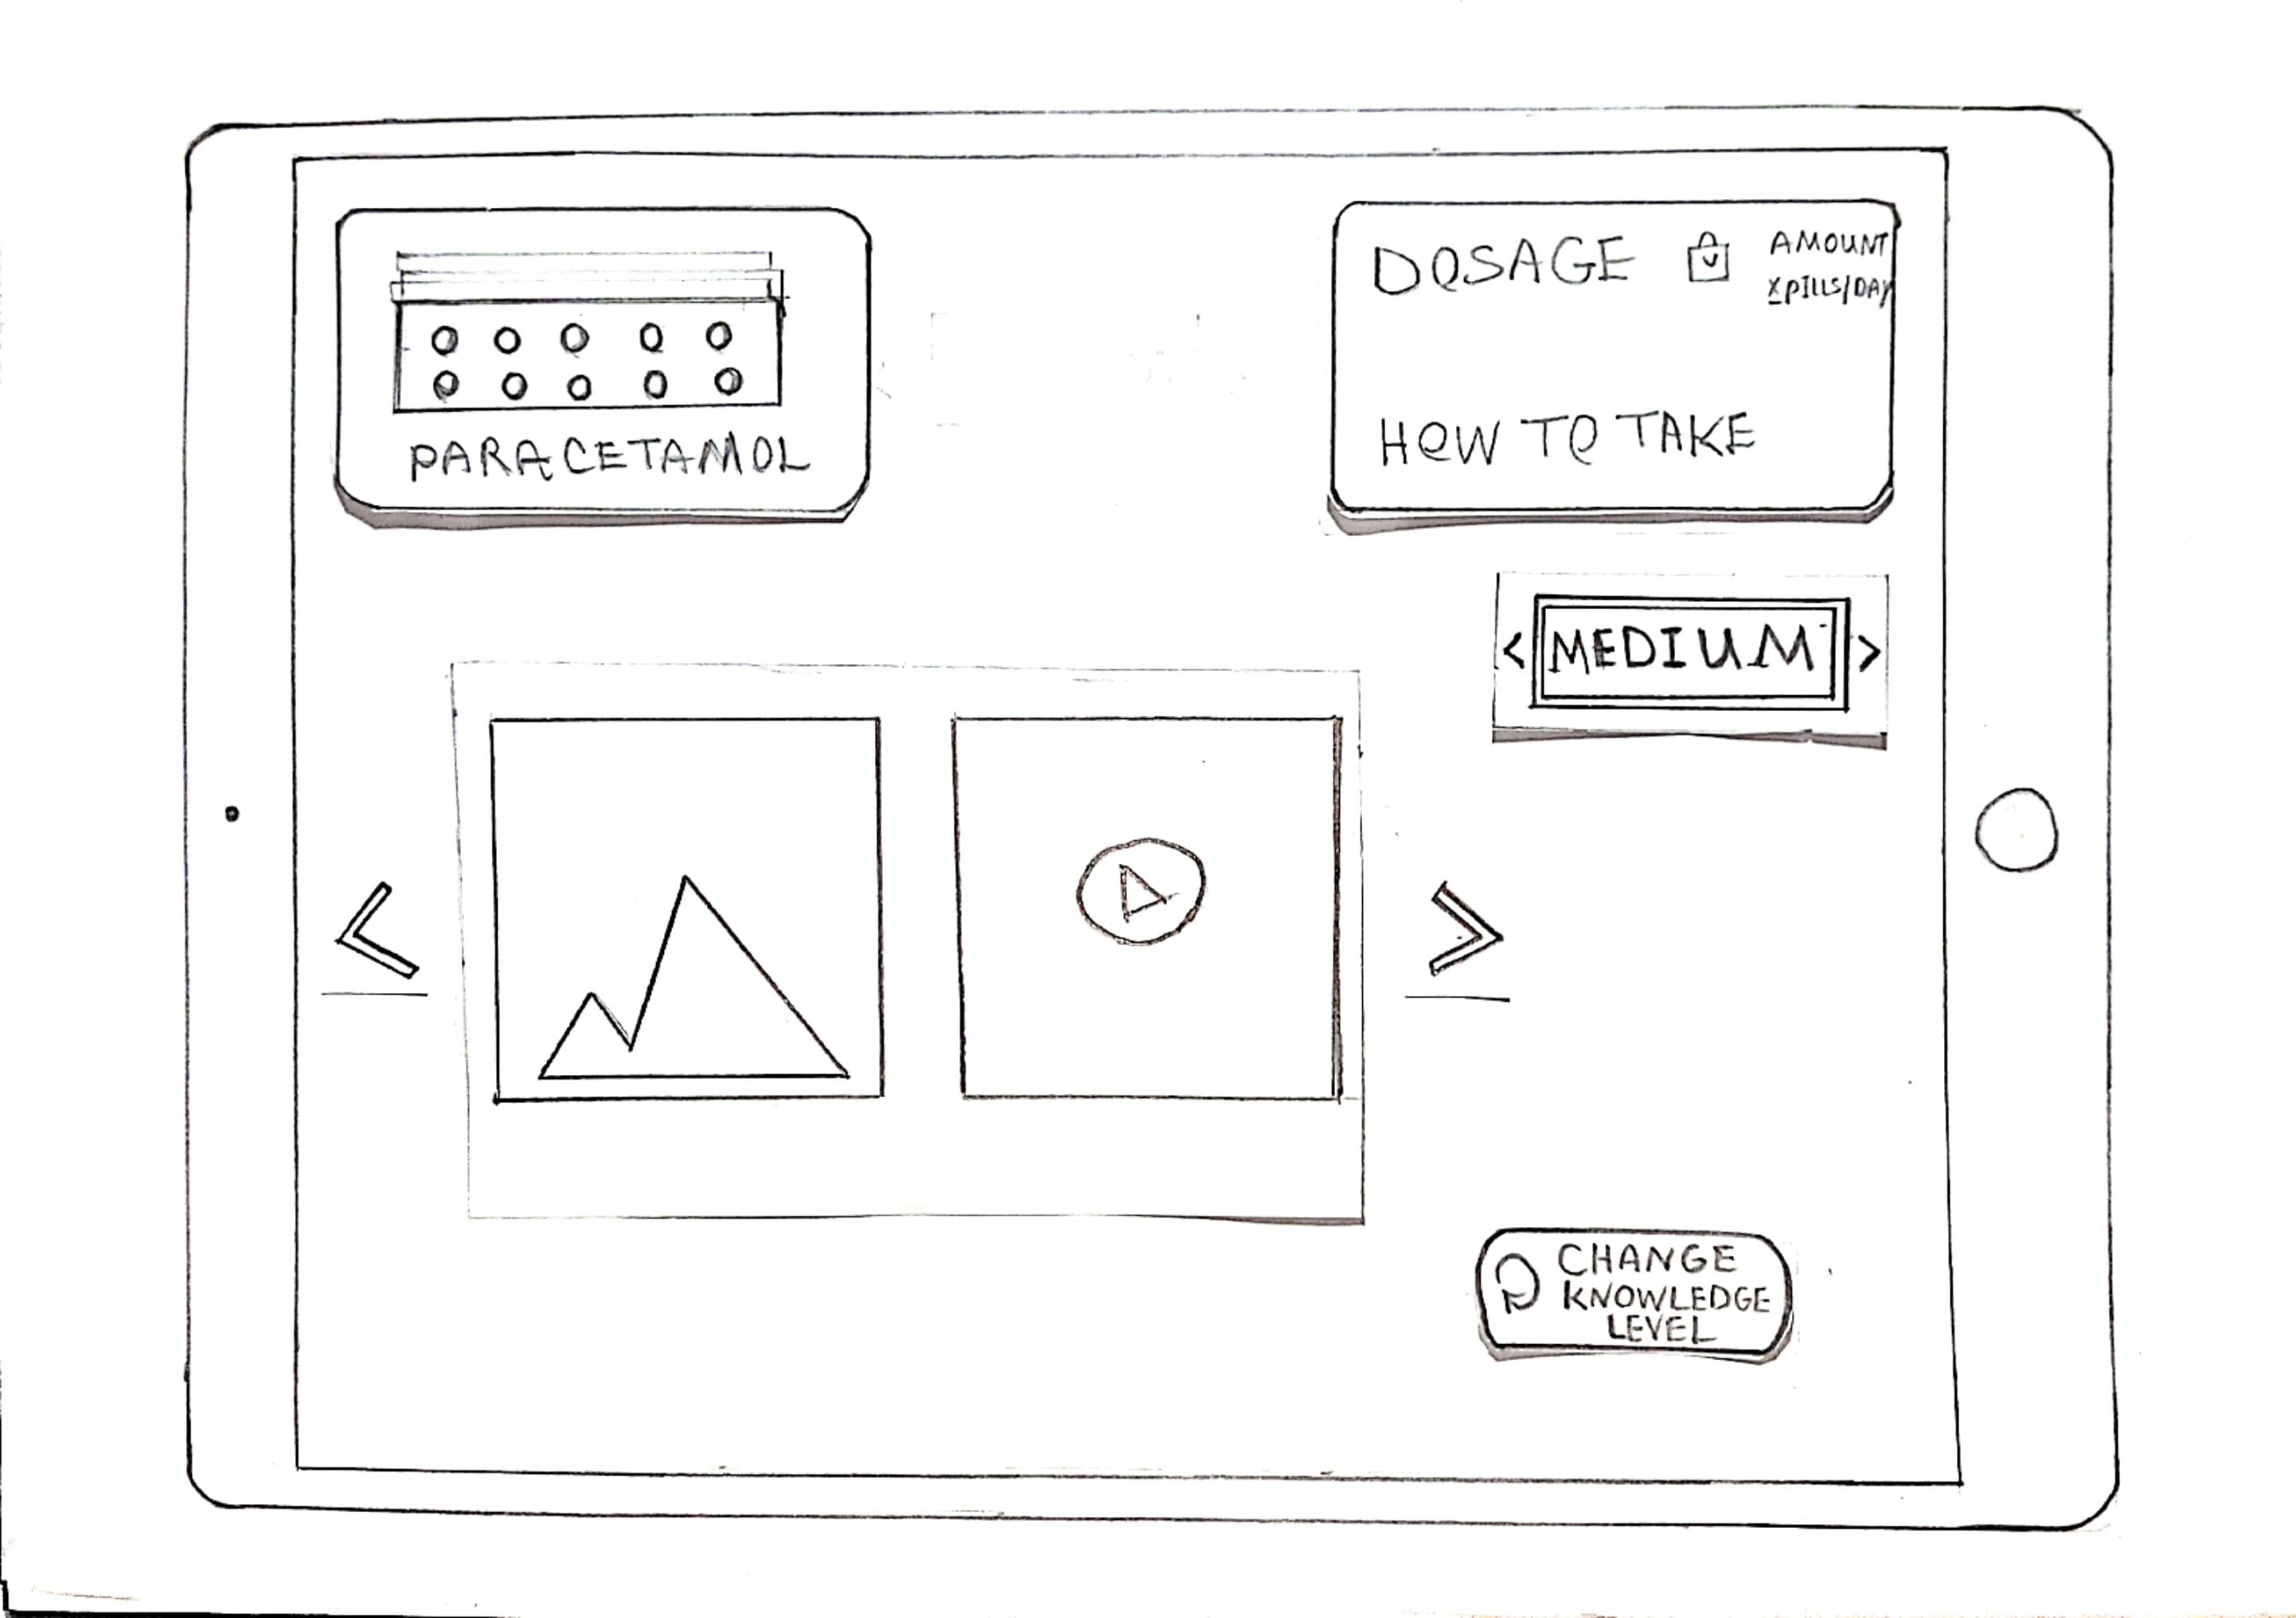 PARACETAMOL
DOSAGE
AMOUNT
XPILLS/DAY
HOW TO TAKE
< MEDIUM >
CHANGE
KNOWLEDGE
LEVEL